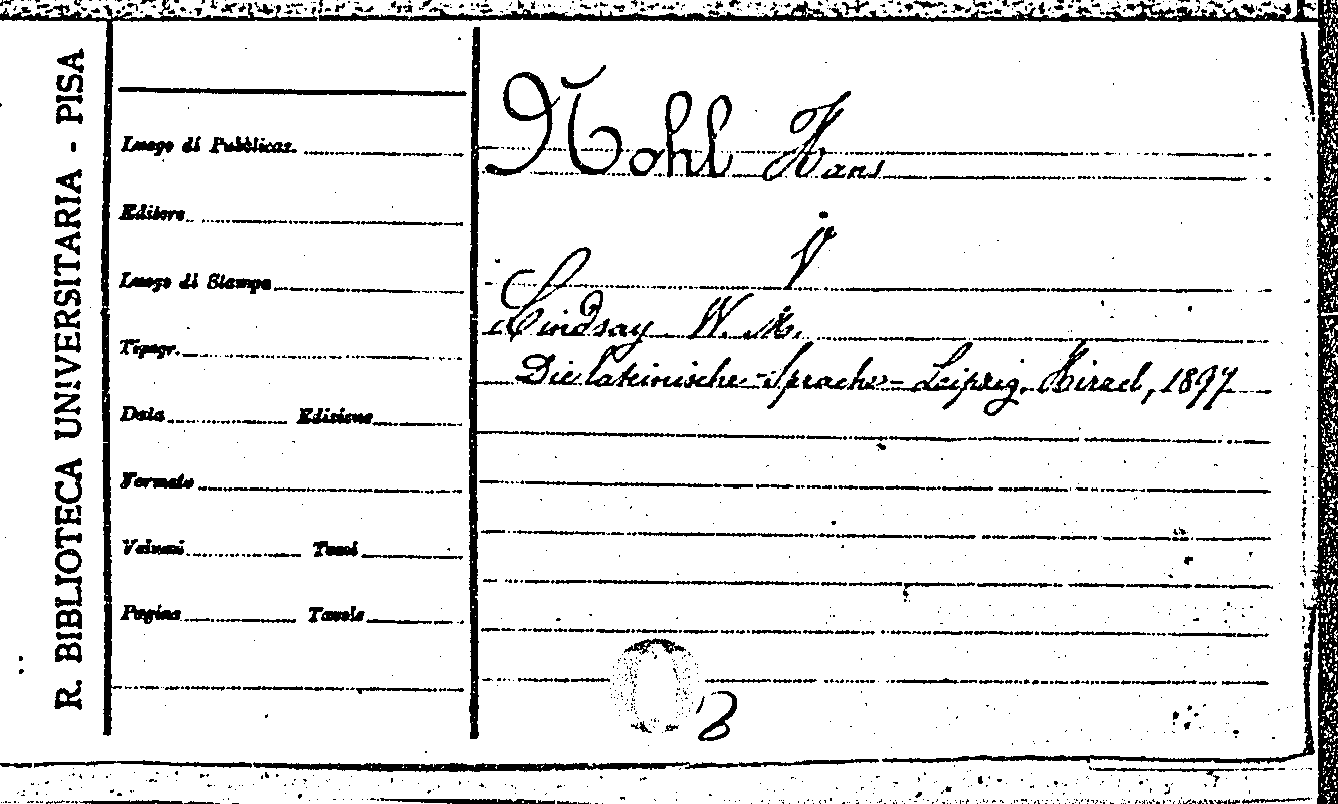 R. BIBLIOTECA UNIVERSITARIA - PISA
Luogo di Pubblicaz.
Editore
Luogo di Stampa
Tipogr.
Data Edizione
Formato
Volumi Tomi
Pagine Tavole
Nohl Hans
V
Lindsay W. M.
Die lateinische Sprache - Leipzig, Hirzel, 1897
B